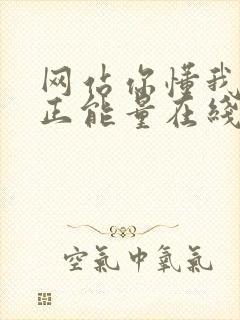 网站你懂我
正能量在线
空氣中氧氣